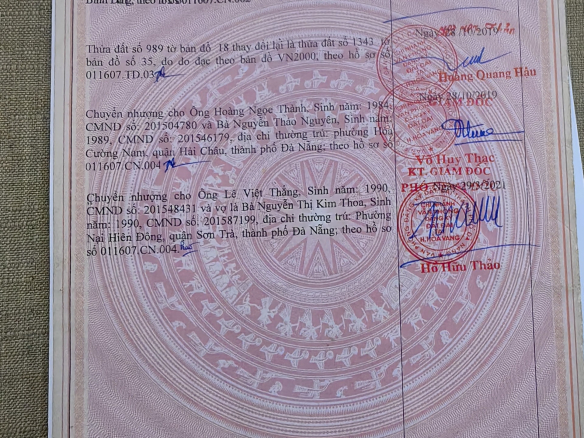 theo hồ sơ số 011607.CN.002
Thửa đất số 989 tờ bản đồ 18 thay đổi lại là thửa đất số 1343 tờ
bản đồ số 35, do đo đạc theo bản đồ VN2000; theo hồ sơ số
011607.TD.03
Ngày 28/10/2019
Hoàng Quang Hậu
Chuyển nhượng cho Ông Hoàng Ngọc Thành, Sinh năm: 1984,
CMND số: 201504780 và Bà Nguyễn Thảo Nguyên, Sinh năm:
1989, CMND số: 201546179, địa chỉ thường trú: phường Hòa
Cường Nam, quận Hải Châu, thành phố Đà Nẵng; theo hồ sơ số
011607.CN.004
Ngày 28/10/2019
GIÁM ĐỐC
Võ Huy Thạc
Chuyển nhượng cho Ông Lê Viết Thắng, Sinh năm: 1990,
CMND số: 201548431 và vợ là Bà Nguyễn Thị Kim Thoa, Sinh
năm: 1990, CMND số: 201587199, địa chỉ thường trú: Phường
Nại Hiên Đông, quận Sơn Trà, thành phố Đà Nẵng; theo hồ sơ
số 011607.CN.004
KT. GIÁM ĐỐC
Ngày 29/3/2021
CHI NHÁNH
VĂN PHÒNG
ĐĂNG KÝ
ĐẤT ĐAI
H. HÒA VANG
Hồ Hữu Thảo